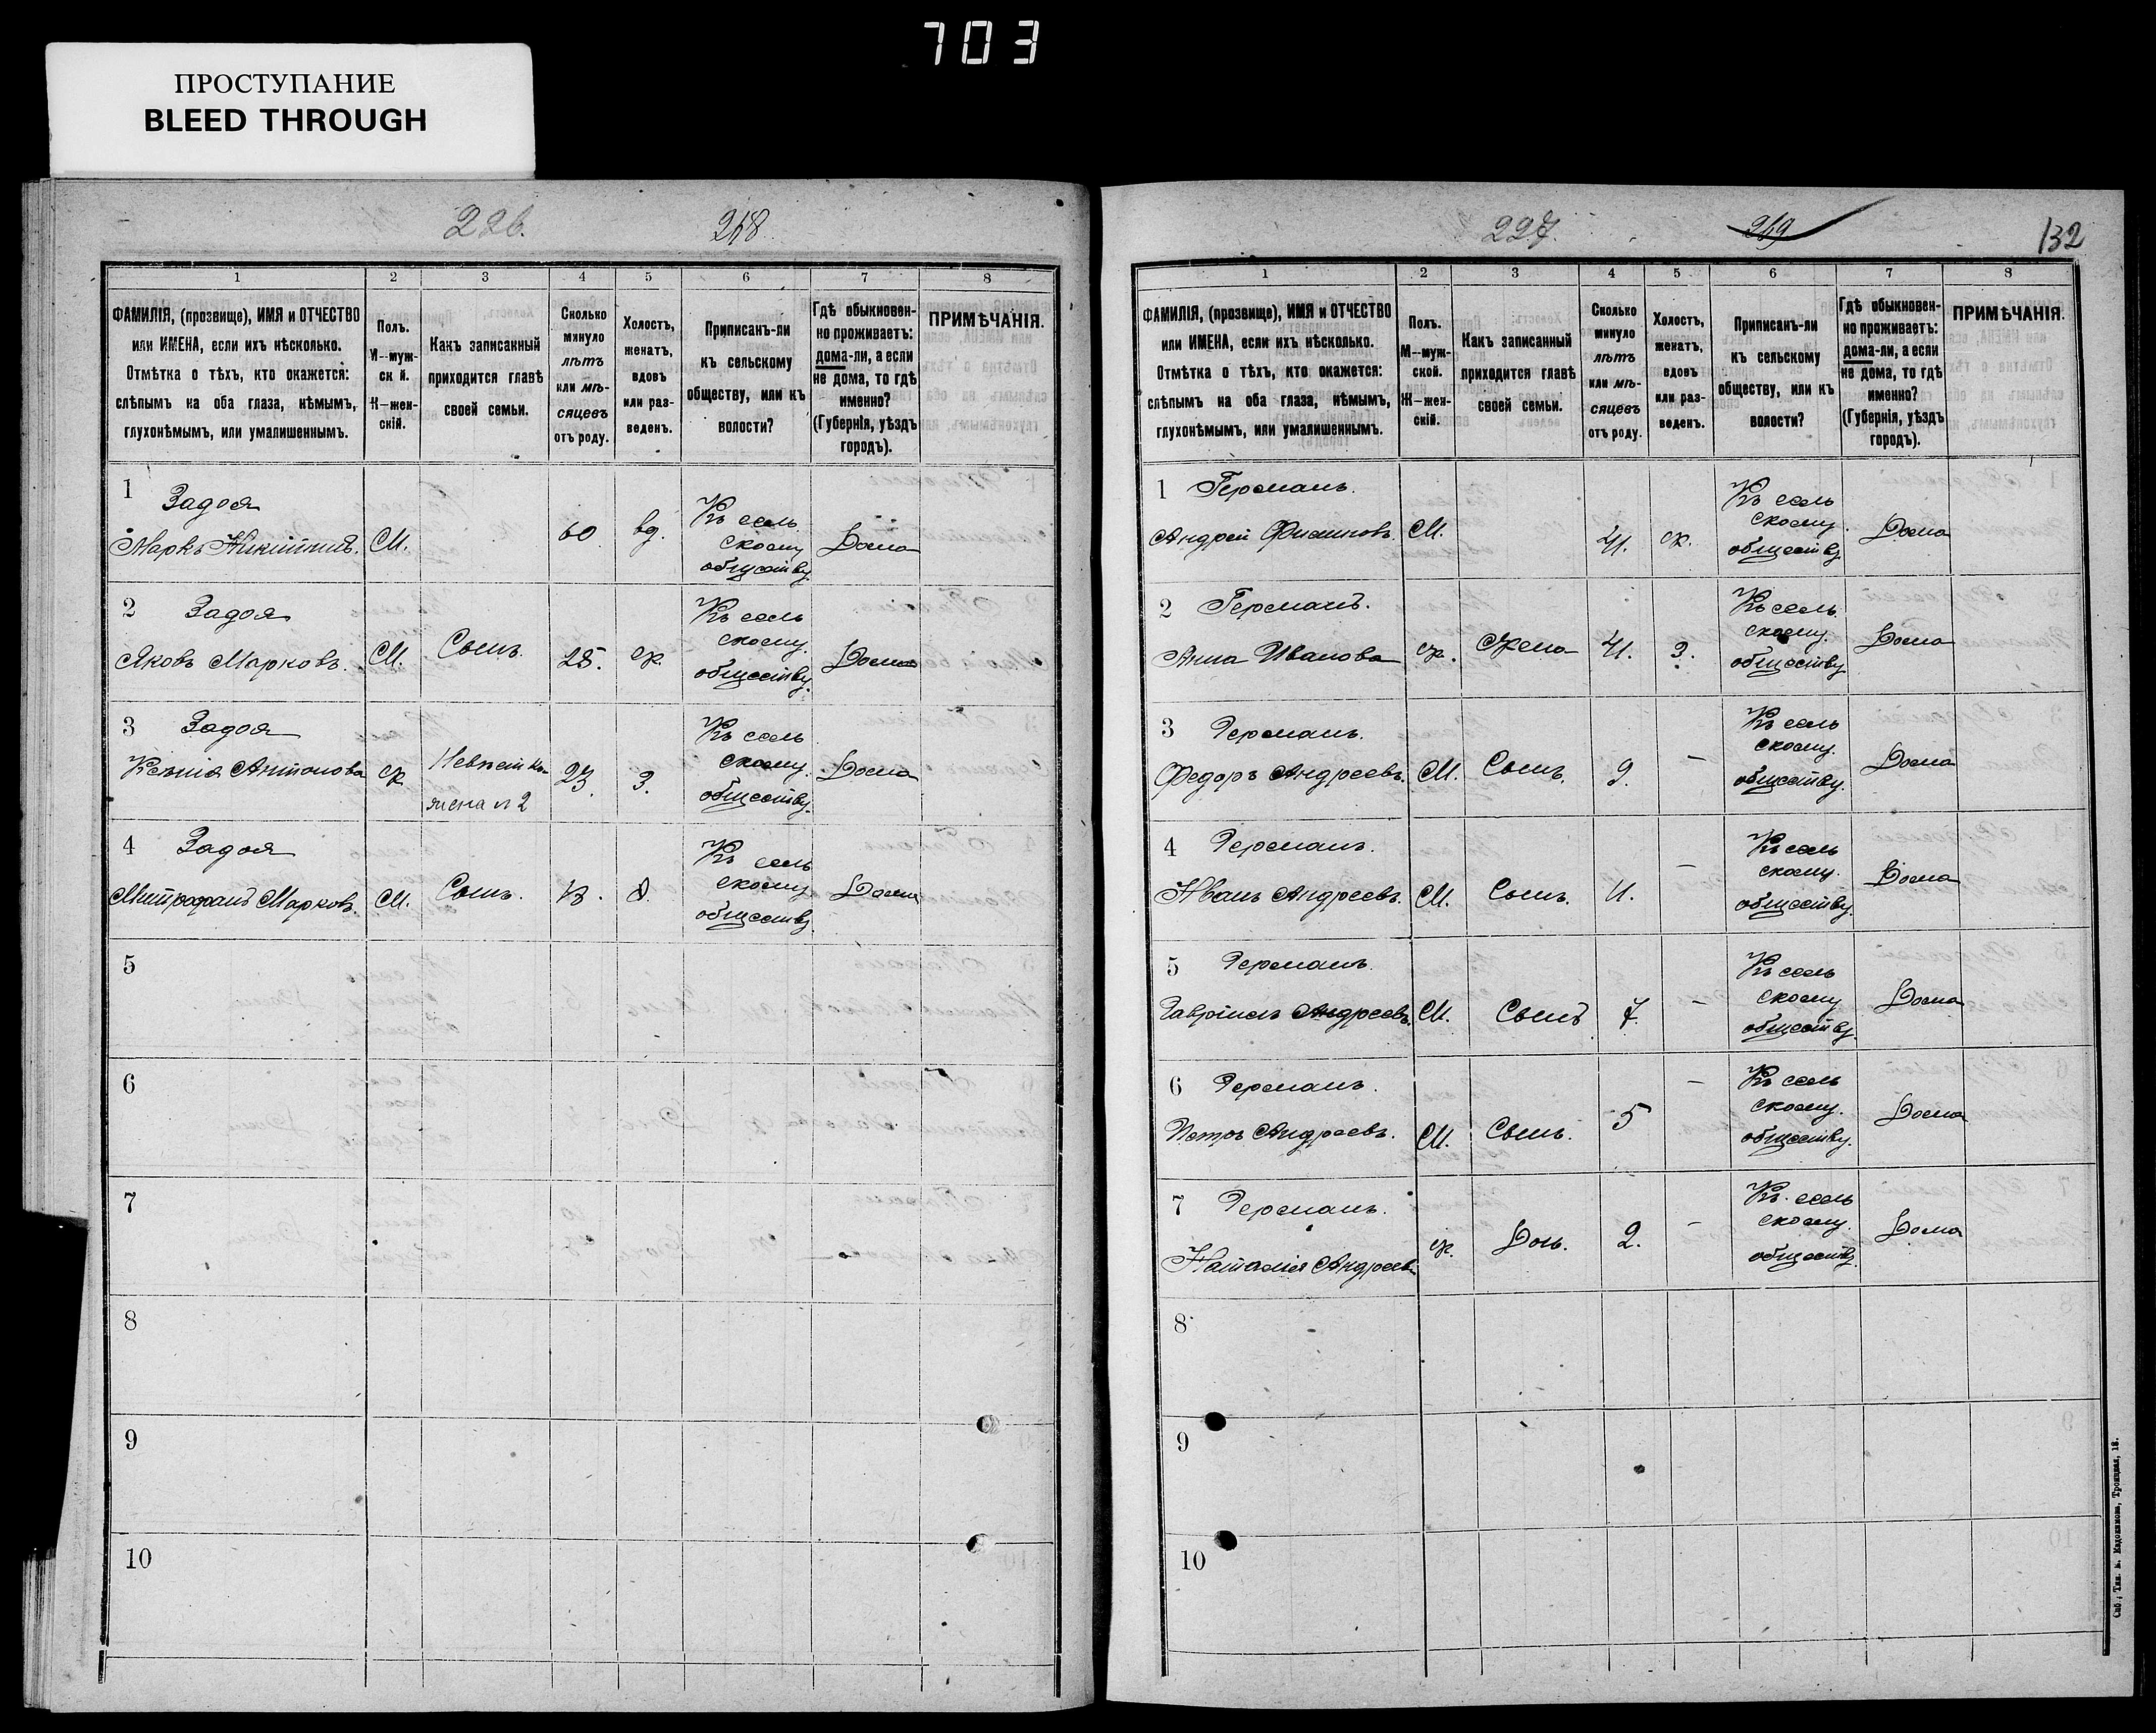 703
ПРОСТУПАНИЕ
BLEED THROUGH
226.
218
1 2 3 4 5 6 7 8
ФАМИЛІЯ, (прозвище), ИМЯ и ОТЧЕСТВО или ИМЕНА, если ихъ нѣсколько. Отмѣтка о тѣхъ, кто окажется: слѣпымъ на оба глаза, нѣмымъ, глухонѣмымъ, или умалишеннымъ.
Полъ. М—мужской. Ж—женскій.
Какъ записанный приходится главѣ своей семьи.
Сколько минуло лѣтъ или мѣсяцевъ отъ роду.
Холостъ, женатъ, вдовъ или разведенъ.
Приписанъ-ли къ сельскому обществу, или къ волости?
Гдѣ обыкновенно проживаетъ: дома-ли, а если не дома, то гдѣ именно? (Губернія, уѣздъ городъ).
ПРИМѢЧАНІЯ.
1 Задоя
Маркъ Никитинъ. М. 60 вд. Къ сельскому обществу Дома
2 Задоя
Яковъ Марковъ. М. Сынъ. 28. ж. Къ сельскому обществу. Дома
3 Задоя
Ксенія Антонова ж. жена n 2 23. З. Къ сельскому. обществу. Дома
4 Задоя
Митрофанъ Марковъ. М. Сынъ. Къ сельскому обществу Дома
5
6
7
8
9
10
227.
219
132
1 2 3 4 5 6 7 8
ФАМИЛІЯ, (прозвище), ИМЯ и ОТЧЕСТВО или ИМЕНА, если ихъ нѣсколько. Отмѣтка о тѣхъ, кто окажется: слѣпымъ на оба глаза, нѣмымъ, глухонѣмымъ, или умалишеннымъ.
Полъ. М—мужской. Ж—женскій.
Какъ записанный приходится главѣ своей семьи.
Сколько минуло лѣтъ или мѣсяцевъ отъ роду.
Холостъ, женатъ, вдовъ или разведенъ.
Приписанъ-ли къ сельскому обществу, или къ волости?
Гдѣ обыкновенно проживаетъ: дома-ли, а если не дома, то гдѣ именно? (Губернія, уѣздъ городъ).
ПРИМѢЧАНІЯ.
1 Германъ.
Андрей М. 41. ж. Къ сельскому обществу Дома
2 Германъ.
Анна Иванова ж. Жена 41. З. Къ сельскому. обществу Дома
3 Германъ.
Федоръ Андреевъ. М. Сынъ. 9. — Къ сельскому. обществу. Дома
4 Германъ.
Иванъ Андреевъ. М. Сынъ. 11. — Къ сельскому. обществу. Дома
5 Германъ.
Гавріилъ Андреевъ. М. Сынъ 7. — Къ сельскому обществу. Дома
6 Германъ.
Петръ Андреевъ. М. Сынъ. 5 — Къ сельскому. обществу. Дома
7 Германъ.
Наталія Андреев ж. Дочь. 2. — Къ сельскому. обществу. Дома
8
9
10